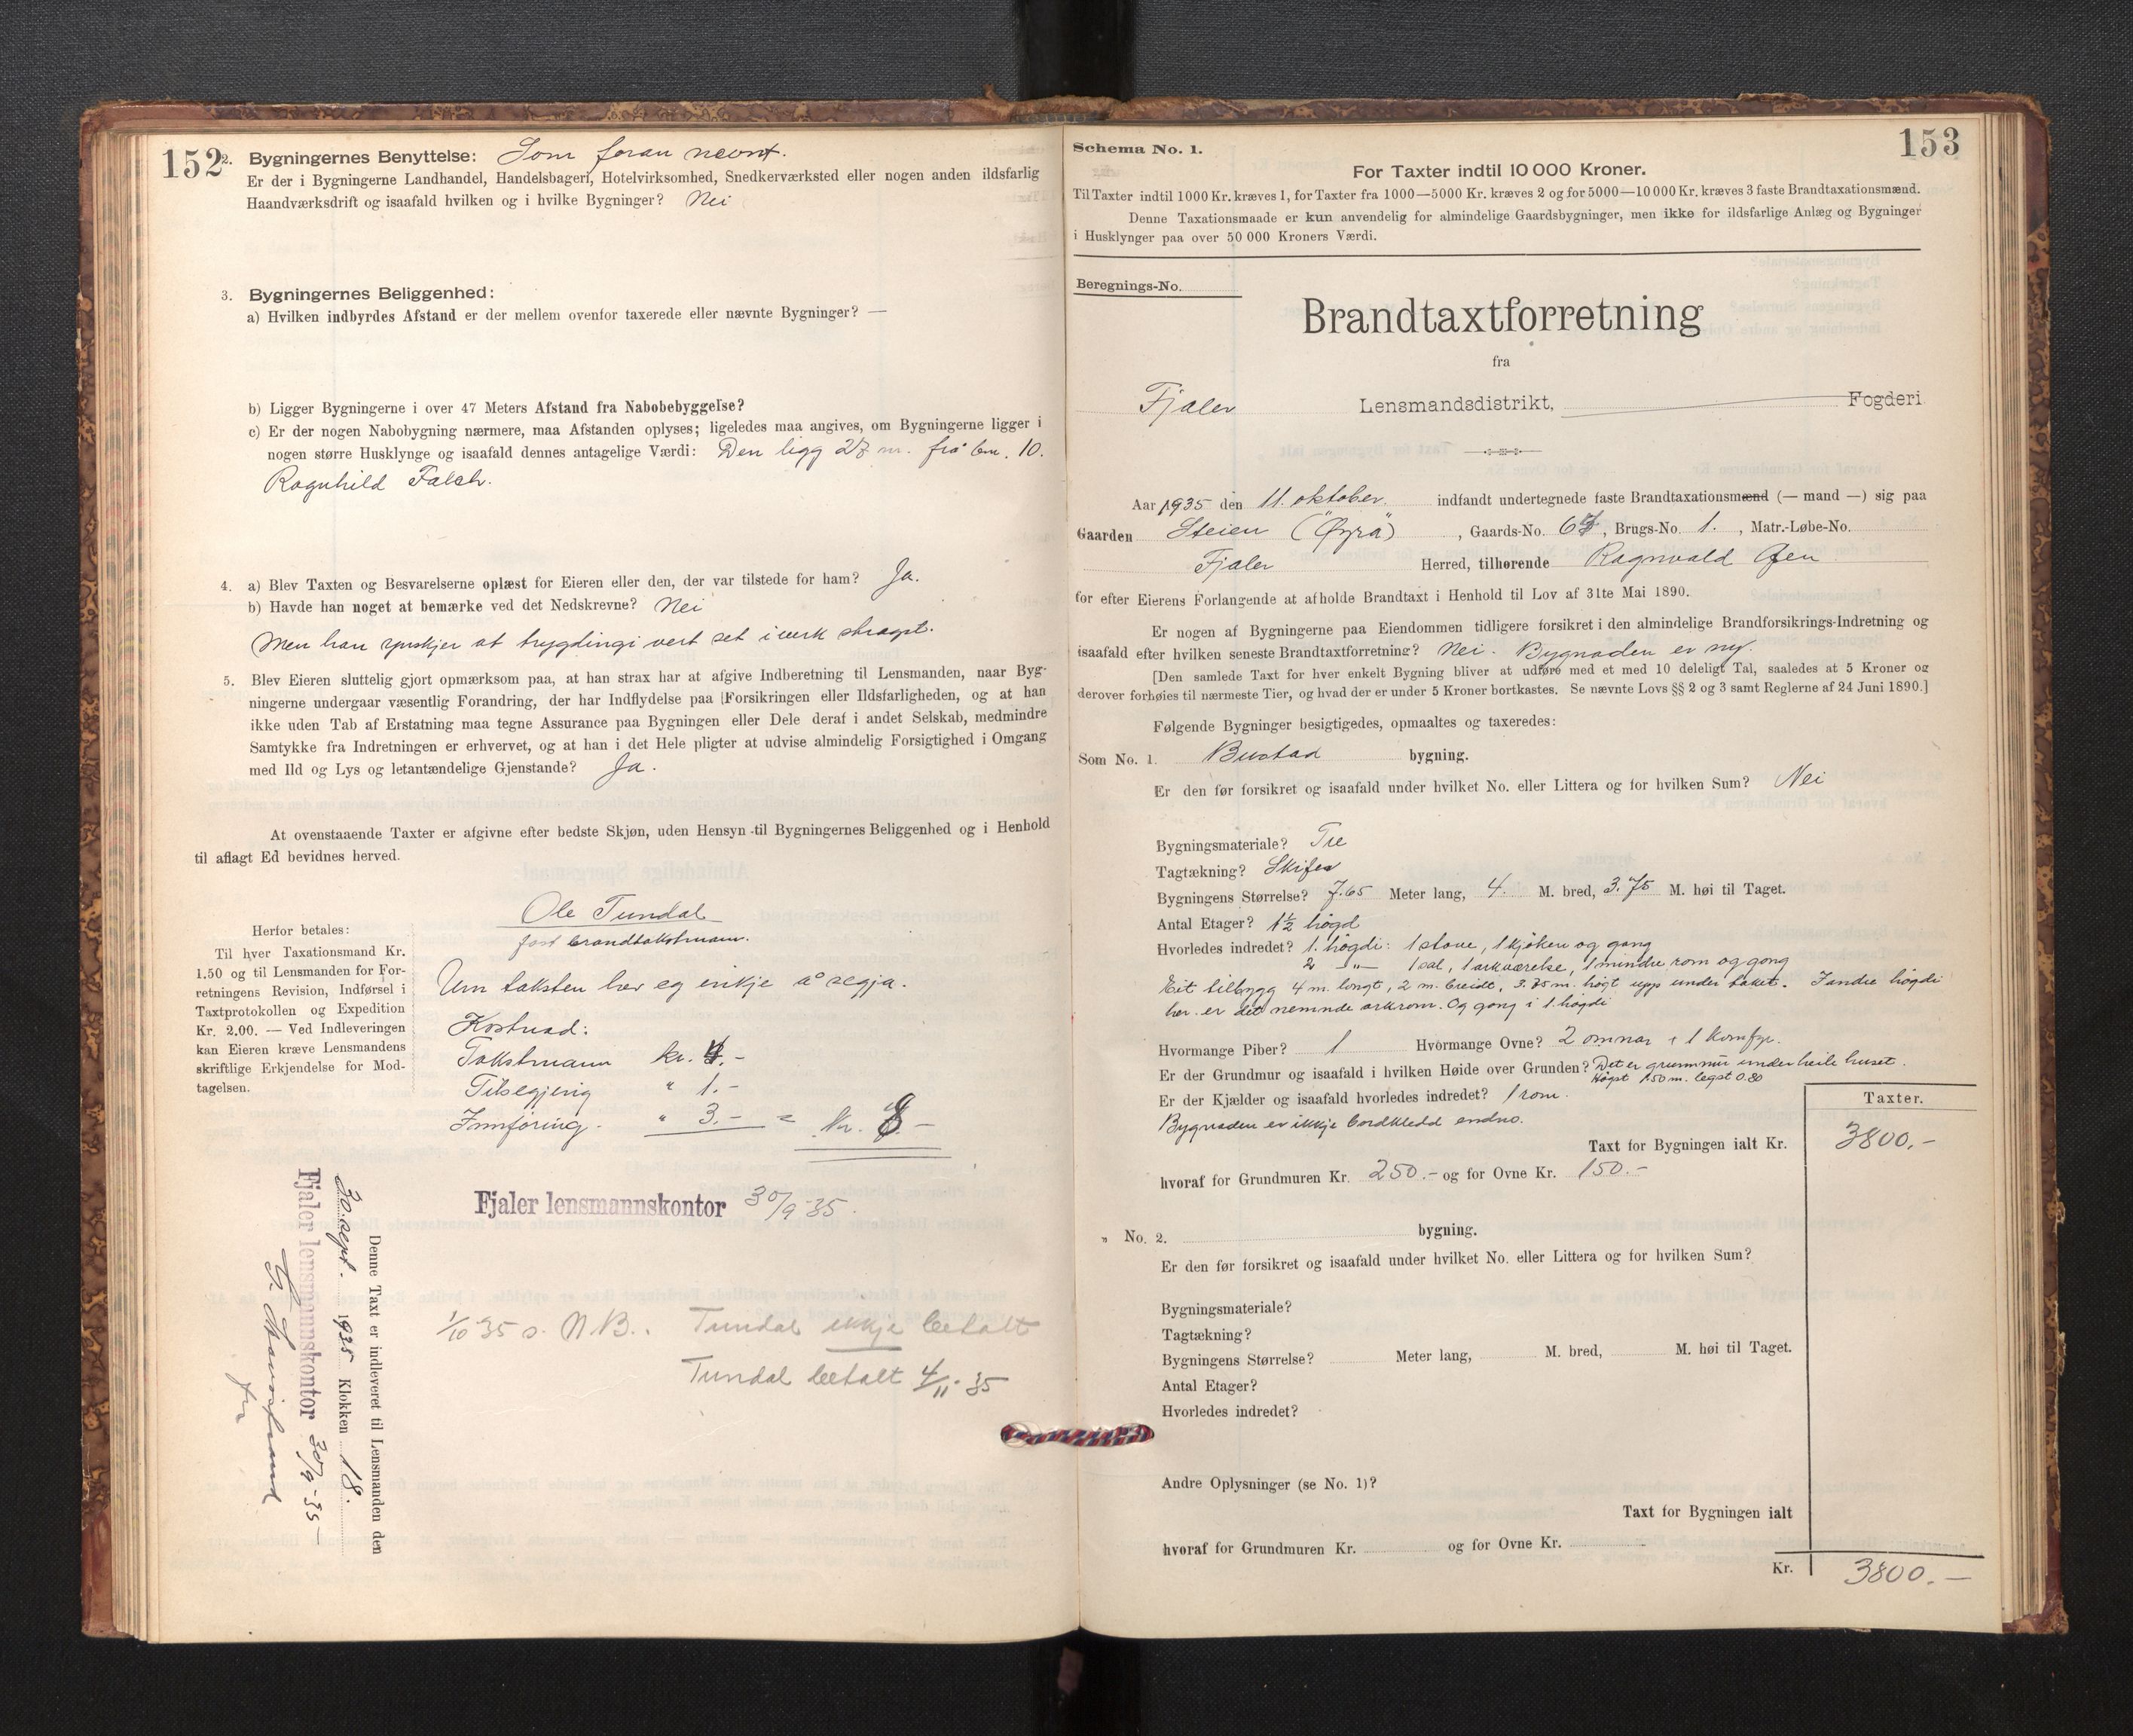 152
2. Bygningernes Benyttelse: Som foran nevnt.
Er der i Bygningerne Landhandel, Handelsbageri, Hotelvirksomhed, Snedkerværksted eller nogen anden ildsfarlig
Haandværksdrift og isaafald hvilken og i hvilke Bygninger? Nei
3. Bygningernes Beliggenhed:
a) Hvilken indbyrdes Afstand er der mellem ovenfor taxerede eller nævnte Bygninger? —
b) Ligger Bygningerne i over 47 Meters Afstand fra Nabobebyggelse?
c) Er der nogen Nabobygning nærmere, maa Afstanden oplyses; ligeledes maa angives, om Bygningerne ligger i
nogen større Husklynge og isaafald dennes antagelige Værdi: Den ligg 27 m. frå bm. 10.
Ragnhild Falch.
4. a) Blev Taxten og Besvarelserne oplæst for Eieren eller den, der var tilstede for ham? Ja.
b) Havde han noget at bemærke ved det Nedskrevne? Nei
Men han ynskjer at trygdingi vert set i verk stragst.
5. Blev Eieren sluttelig gjort opmærksom paa, at han strax har at afgive Indberetning til Lensmanden, naar Byg-
ningerne undergaar væsentlig Forandring, der har Indflydelse paa Forsikringen eller Ildsfarligheden, og at han
ikke uden Tab af Erstatning maa tegne Assurance paa Bygningen eller Dele deraf i andet Selskab, medmindre
Samtykke fra Indretningen er erhvervet, og at han i det Hele pligter at udvise almindelig Forsigtighed i Omgang
med Ild og Lys og letantændelige Gjenstande? Ja.
At ovenstaaende Taxter er afgivne efter bedste Skjøn, uden Hensyn til Bygningernes Beliggenhed og i Henhold
til aflagt Ed bevidnes herved.
Ole Tundal
fast brandtakstmann.
Herfor betales:
Til hver Taxationsmand Kr.
1.50 og til Lensmanden for For-
retningens Revision, Indførsel i
Taxtprotokollen og Expedition
Kr. 2.00. — Ved Indleveringen
kan Eieren kræve Lensmandens
skriftlige Erkjendelse for Mod-
tagelsen.
Um taksten her eg inkje å segja.
Kostnad:
Takstmann kr. 4.-
Tilsegjing " 1.-
Innføring - " 3.- = Kr. 8 -
Fjaler lensmannskontor 30/9 35.
1/10 35 s. N.B.. Tundal ikkje betalt
Tundal betalt 4/11-35
Denne Taxt er indleveret til Lensmanden den
30. sept. 1935 Klokken 18.
Fjaler lensmannskontor 30/9-35-
153
Schema No. 1.
For Taxter indtil 10 000 Kroner.
Til Taxter indtil 1000 Kr. kræves 1, for Taxter fra 1000—5000 Kr. kræves 2 og for 5000—10 000 Kr. kræves 3 faste Brandtaxationsmænd.
Denne Taxationsmaade er kun anvendelig for almindelige Gaardsbygninger, men ikke for ildsfarlige Anlæg og Bygninger
i Husklynger paa over 50 000 Kroners Værdi.
Beregnings-No.
Brandtaxtforretning
fra
Fjaler Lensmandsdistrikt, Fogderi
Aar 1935 den 11. oktober. indfandt undertegnede faste Brandtaxationsmænd (— mand —) sig paa
Gaarden Steien ("Øyra"), Gaards-No. 67, Brugs-No. 1., Matr.-Løbe-No.
Fjaler Herred, tilhørende Ragnvald Øen
for efter Eierens Forlangende at afholde Brandtaxt i Henhold til Lov af 31te Mai 1890.
Er nogen af Bygningerne paa Eiendommen tidligere forsikret i den almindelige Brandforsikrings-Indretning og
isaafald efter hvilken seneste Brandtaxtforretning? Nei. Bygnaden er ny.
[Den samlede Taxt for hver enkelt Bygning bliver at udføre med et med 10 deleligt Tal, saaledes at 5 Kroner og
derover forhøies til nærmeste Tier, og hvad der er under 5 Kroner bortkastes. Se nævnte Lovs §§ 2 og 3 samt Reglerne af 24 Juni 1890.]
Følgende Bygninger besigtigedes, opmaaltes og taxeredes:
Som No. 1. Bustad bygning.
Er den før forsikret og isaafald under hvilket No. eller Littera og for hvilken Sum? Nei
Bygningsmateriale? Tre
Tagtækning? Skifer
Bygningens Størrelse? 7.65 Meter lang, 4. M. bred, 3.75 M. høi til Taget.
Antal Etager? 1½ høgd
Hvorledes indredet? 1. høgdi: 1 stove, 1 kjøken og gang
2 -"- 1 sal, 1 arkværelse, 1 mindre rom og gang
Eit tilbygg 4 m. langt, 2 m. breidt, 3.75 m. høgt upp under taket. I andre høgdi
her er det nemnde arkrom. Og gang i 1. høgdi
Hvormange Piber? 1 Hvormange Ovne? 2 omnar + 1 komfyr.
Er der Grundmur og isaafald i hvilken Høide over Grunden? Det er grunnmur under heile huset.
Høgst 1.50 m. legst 0.80
Er der Kjælder og isaafald hvorledes indredet? 1 rom.
Bygnaden er ikkje bordkledd endno.
Taxter.
Taxt for Bygningen ialt Kr. 3800,-
hvoraf for Grundmuren Kr. 250.- og for Ovne Kr. 150.-
" No. 2. bygning.
Er den før forsikret og isaafald under hvilket No. eller Littera og for hvilken Sum?
Bygningsmateriale?
Tagtækning?
Bygningens Størrelse? Meter lang, M. bred, M. høi til Taget.
Antal Etager?
Hvorledes indredet?
Andre Oplysninger (se No. 1)?
Taxt for Bygningen ialt
hvoraf for Grundmuren Kr. og for Ovne Kr.
Kr. 3800.-